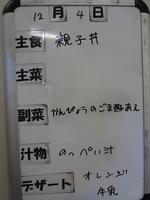 12月4日
主食 親子丼
主菜
副菜 かんぴょうのごま酢あえ
汁物 のっぺい汁
デザート オレンジ
牛乳